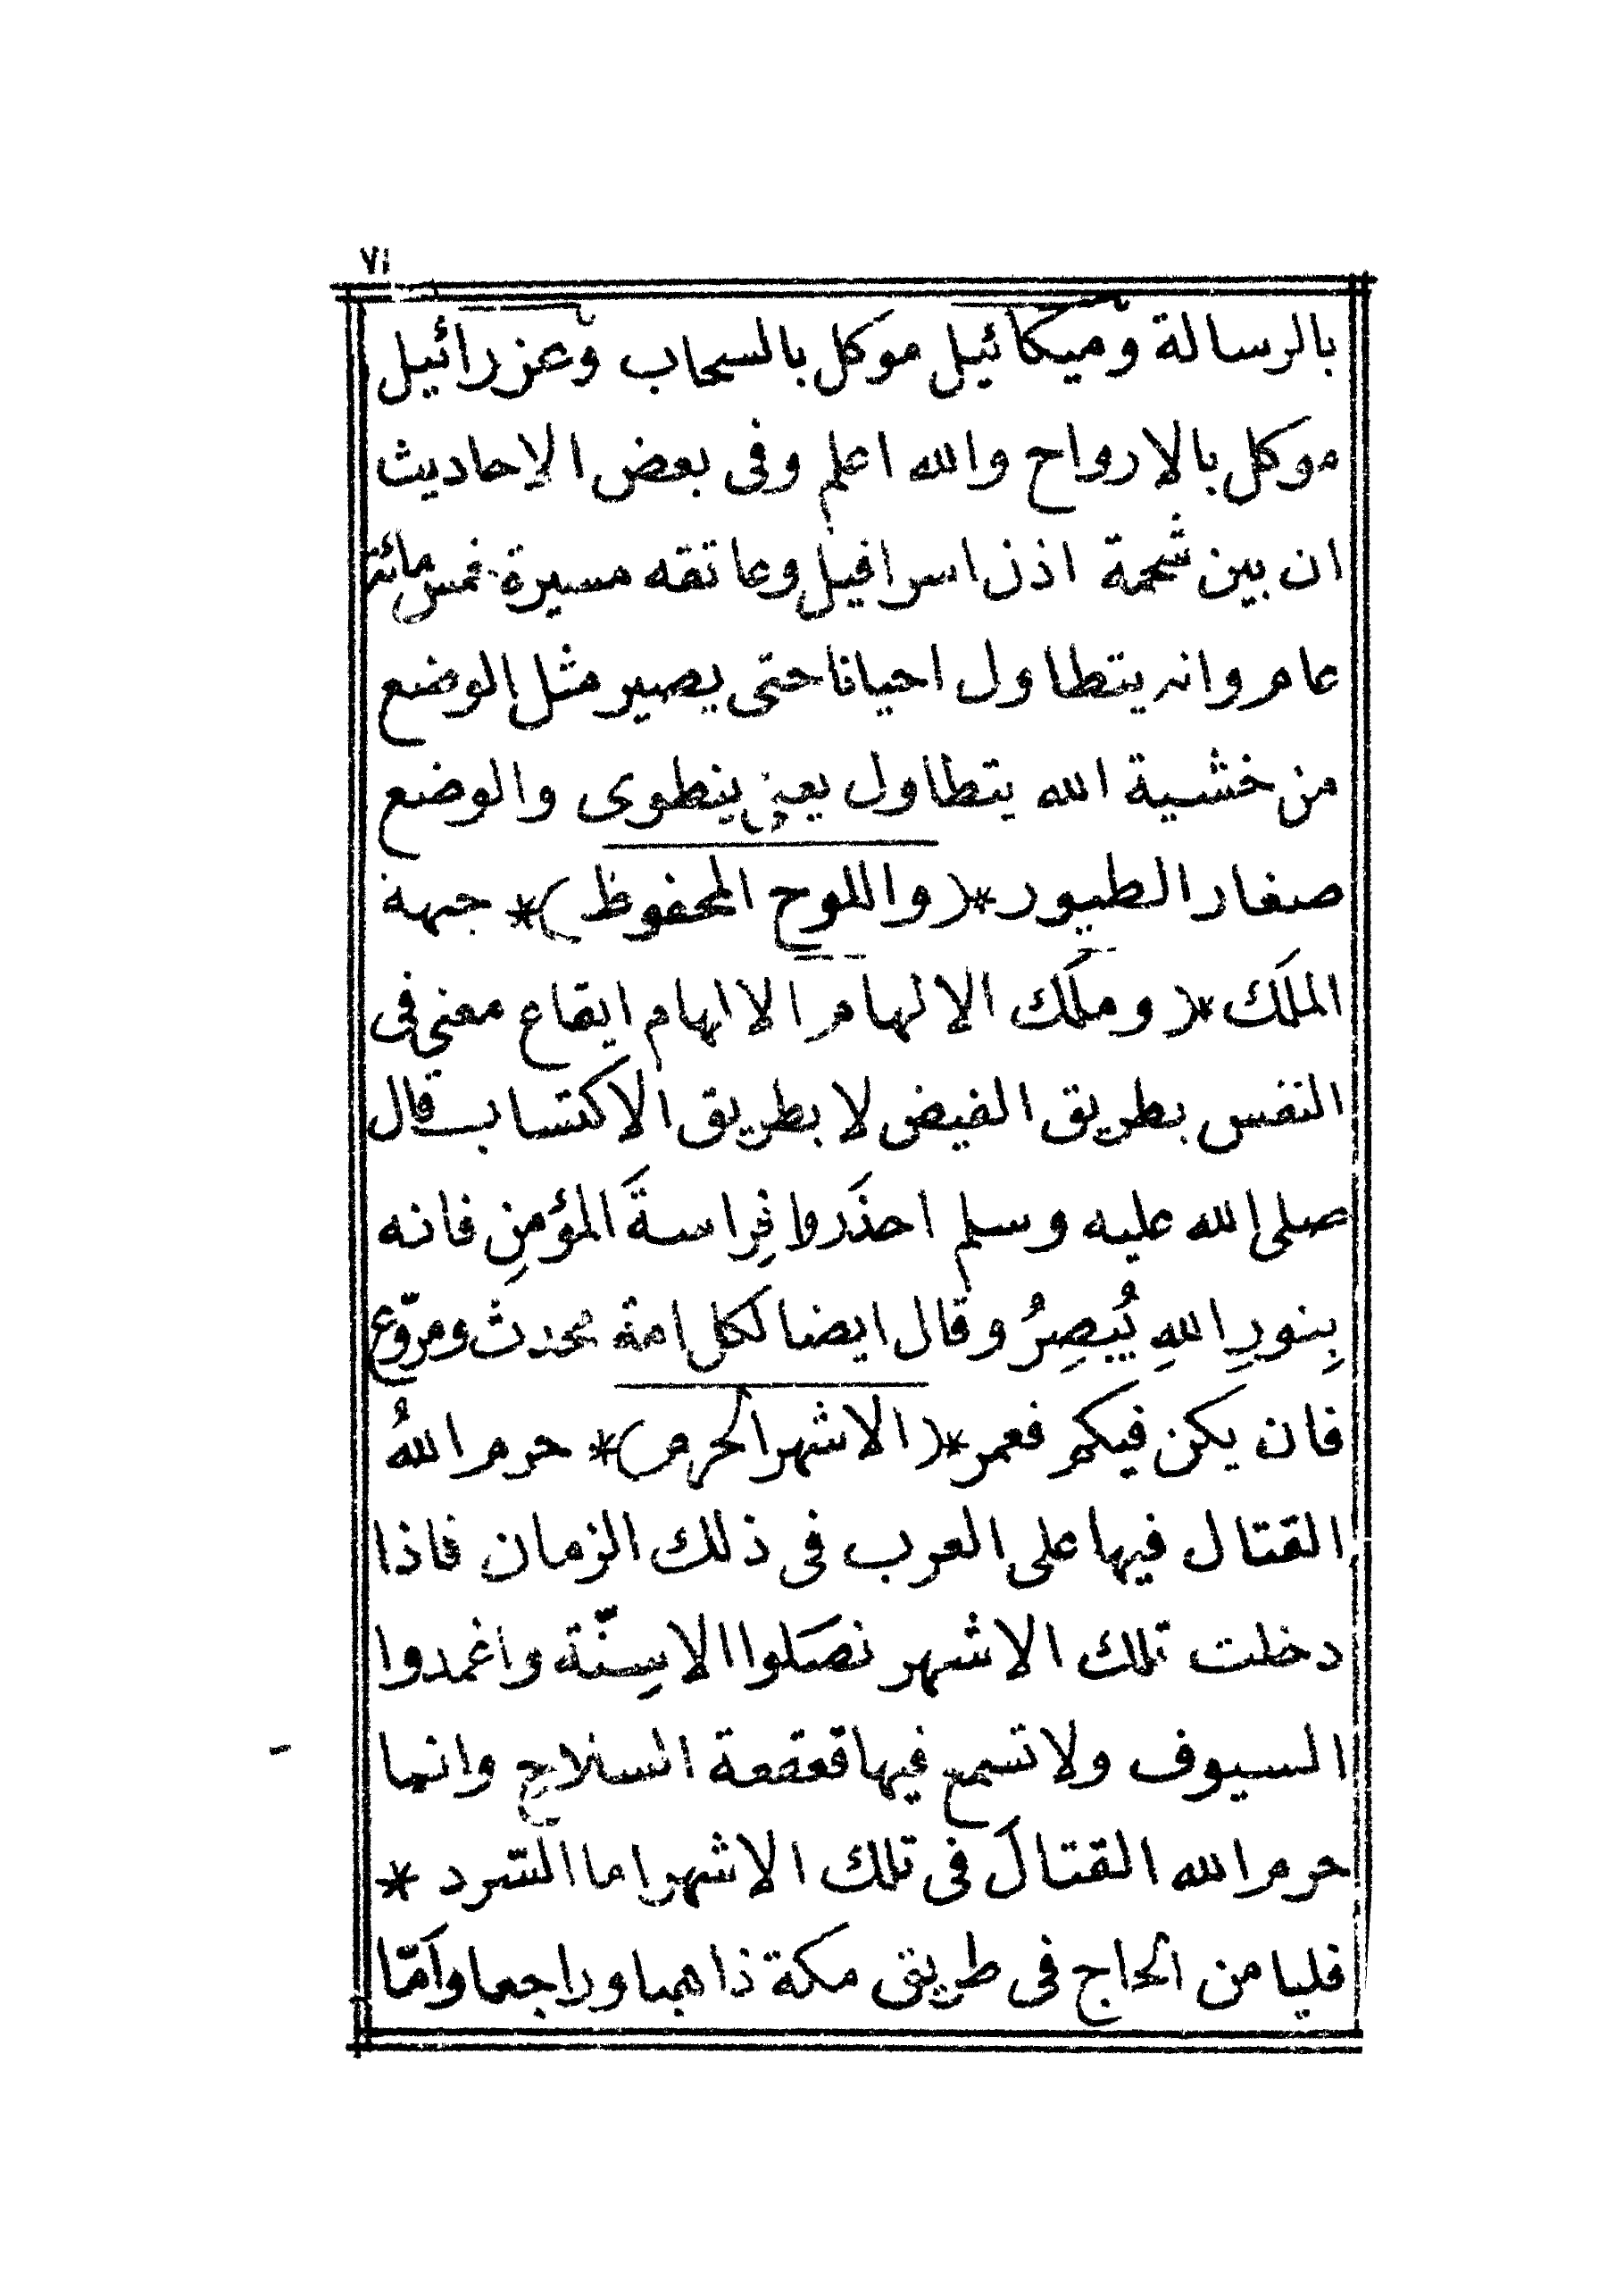 ٧١
بالرسالة وميكائيل موكل بالسحاب وعزرائيل
موكل بالارواح والله اعلم وفى بعض الاحاديث
ان بين شحمة اذن اسرافيل وعاتقه مسيرة خمس مائة
عام وانه يتطاول احيانا حتى يصير مثل الوضع
من خشية الله يتطاول يعنى ينطوى والوضع
صغار الطيور *(واللوح المحفوظ)* جبهة
الملَك *(وملَك الالهام الالهام ايقاع معنى فى
النفس بطريق الفيض لا بطريق الاكتساب قال
صلى الله عليه وسلم احذَروا فِراسةَ المؤمنِ فانه
بِنورِ اللهِ يُبصِرُ وقال ايضا لكل امة محدث ومروّع
فان يكن فيكم فعمر *(الاشهر الحرم)* حرم اللهُ
القتال فيها على العرب فى ذلك الزمان فاذا
دخلت تلك الاشهر نصَلوا الاسِنّة واغمدوا
السيوف ولا تسمع فيها قعقعة السلاح وانما
حرم الله القتالَ فى تلك الاشهر اما السّرد *
فليا من الحاج فى طريق مكة ذاهبا وراجعا وأمّا